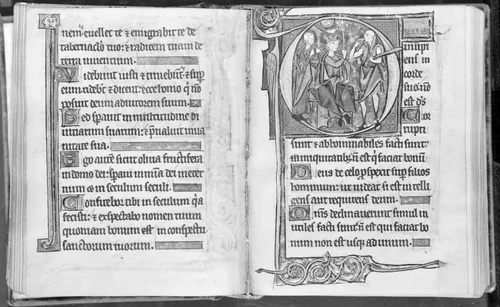 nem evellet te & emigrabit te de
tabernaclo tuo: & radicem tuam de
terra viventium.
Videbunt iusti & timebunt & sup
eum ridebt & dicent: ecce homo q nō
posuit deum adiutorem suum.
Sed speravit in multitudine di
vitiarum suarum: & pvaluit in va
nitate sua.
Ego autē sicut oliva fructifera
in domo dei: speravi in mia dei in eter
num & in seculum seculi.
Confitebor tibi in seculum qa
fecisti: & expectabo nomen tuum
quoniam bonum est in conspectu
sanctorum tuorum.
insipi
ens in
corde
suo: nō
est ds
Cor
rupti
sunt & abhominabiles facti sunt
in iniquitatibȝ: n̄ est q faciat bonū
Deus de celo pspexit sup filios
hominum: ut videat si est intelli
gens aut requirens deum.
Omēs declinaverunt simul in
utiles facti sunt: n̄ est qui faciat bo
num non est usqȝ ad unum.